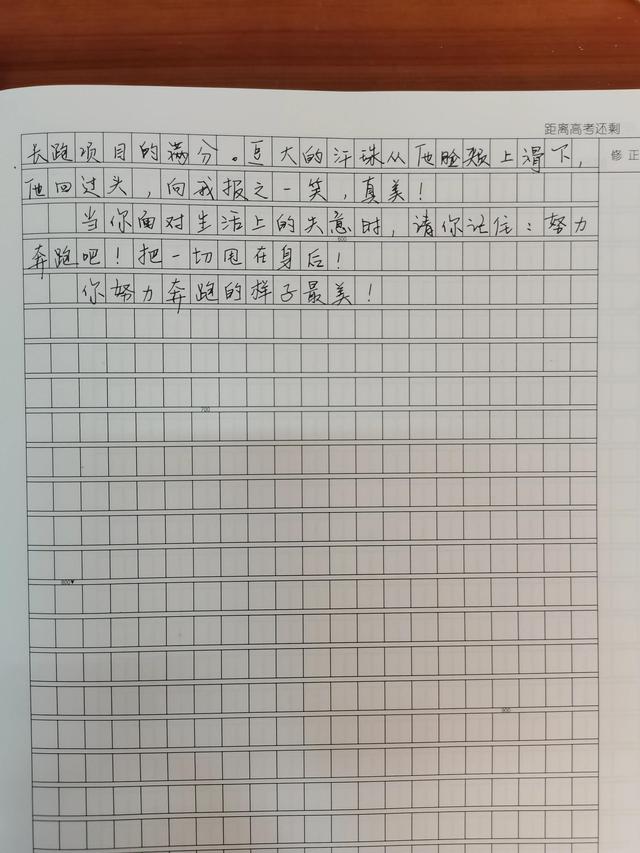 距离高考还剩
修正
长跑项目的满分。豆大的汗珠从他脸颊上滑下,
他回过头,向我报之一笑,真美!
当你面对生活上的失意时,请你记住:努力
600
奔跑吧!把一切甩在身后!
你努力奔跑的样子最美!
700
800▼
900